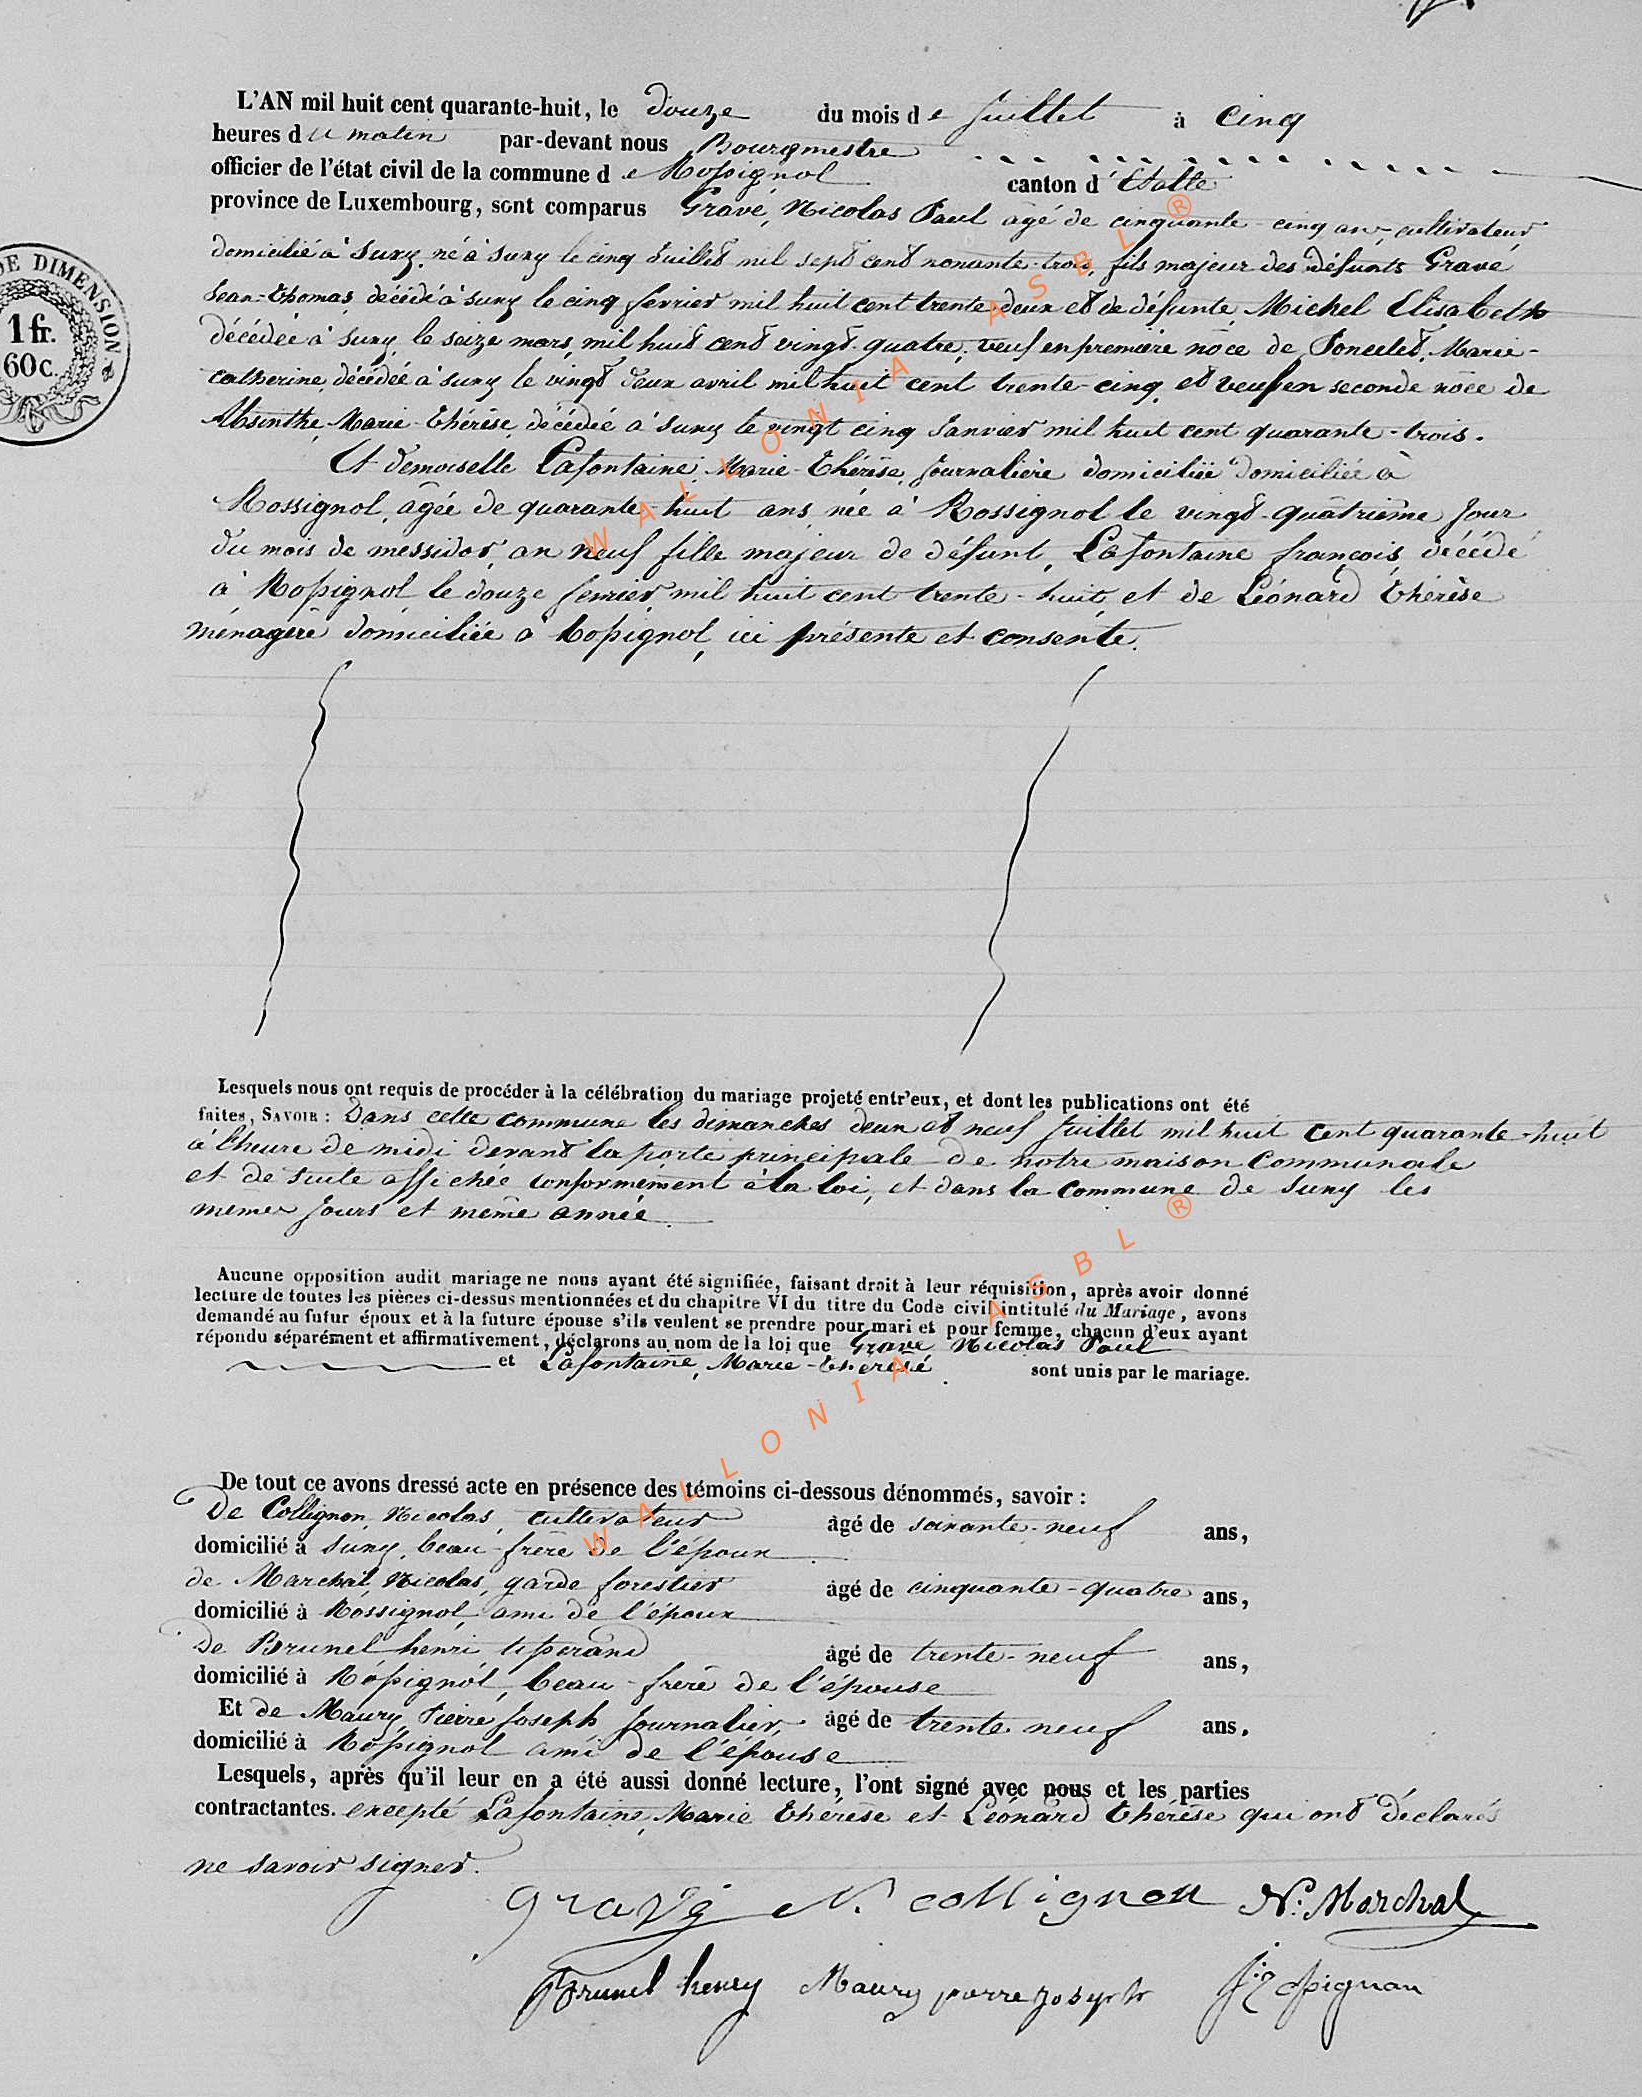 L'AN mil huit cent quarante-huit, le douze du mois de Juillet à cinq
heures du matin par-devant nous Bourgmestre
officier de l'état civil de la commune de Rossignol canton d'Etalle
province de Luxembourg, sont comparus Gravé, Nicolas Paul âgé de cinquante-cinq ans, cultivateur
domicilié à Suxy, né à Suxy le cinq Juillet mil sept cent nonante-trois, fils majeur des défunts Gravé,
Jean-Thomas, décédé à Suxy le cinq fevrier mil huit cent trente deux et de défunte Michel Elisabeth
décédée à Suxy le seize mars, mil huit cent vingt-quatre, veuf en premiere nôce de Poncelet, Marie-
catherine, décédée à Suxy le vingt deux avril mil huit cent trente-cinq, et veuf en seconde nôce de
Absinthe, Marie-Thérèse, décédée à Suxy le vingt cinq Janvier mil huit cent quarante-trois.
Et demoiselle Lafontaine, Marie-Thérèse, Journalière domiciliée domiciliée à
Rossignol, âgée de quarante-huit ans, née à Rossignol le vingt-quâtrième Jour
du mois de messidor, an neuf fille majeur de défunt, Lafontaine françois, décédé
à Rossignol le douze fevrier, mil huit cent trente-huit, et de Léonard Thérèse
ménagère domiciliée à Rossignol, ici présente et consente.
Lesquels nous ont requis de procéder à la célébration du mariage projeté entr'eux, et dont les publications ont été
faites, SAVOIR : Dans cette commune les dimanches deux et neuf Juillet mil huit cent quarante-huit
à l'heure de midi devant la porte principale de notre maison Communale
et de suite affichée conformément à la loi, et dans la commune de Suxy les
memes Jours et même année.
Aucune opposition audit mariage ne nous ayant été signifiée, faisant droit à leur réquisition, après avoir donné
lecture de toutes les pièces ci-dessus mentionnées et du chapitre VI du titre du Code civil intitulé du Mariage, avons
demandé au futur époux et à la future épouse s'ils veulent se prendre pour mari et pour femme, chacun d'eux ayant
répondu séparément et affirmativement, déclarons au nom de la loi que Gravé Nicolas Paul
et Lafontaine, Marie-Thérèse sont unis par le mariage.
De tout ce avons dressé acte en présence des témoins ci-dessous dénommés, savoir :
De Collignon, Nicolas, cultivateur âgé de soixante-neuf ans,
domicilié à Suxy, beau-frère de l'époux
de Marchal, Nicolas, garde forestier âgé de cinquante-quatre ans,
domicilié à Rossignol, ami de l'époux
De Brunel henri, tisserand âgé de trente-neuf ans,
domicilié à Rossignol, beau-frère de l'épouse
Et de Maury, Pierre Joseph, Journalier, âgé de trente neuf ans.
domicilié à Rossignol ami de l'épouse
Lesquels, après qu'il leur en a été aussi donné lecture, l'ont signé avec nous et les parties
contractantes. excepté Lafontaine, Marie Thérèse et Léonard Thérèse qui ont déclarés
ne savoir signer.
gravé N. collignon N: Marchal
Brunel henry Maury pierre Joseph
DE DIMENSION
1 fr.
60c.
WALLONIA ASBL ®
WALLONIA ASBL ®